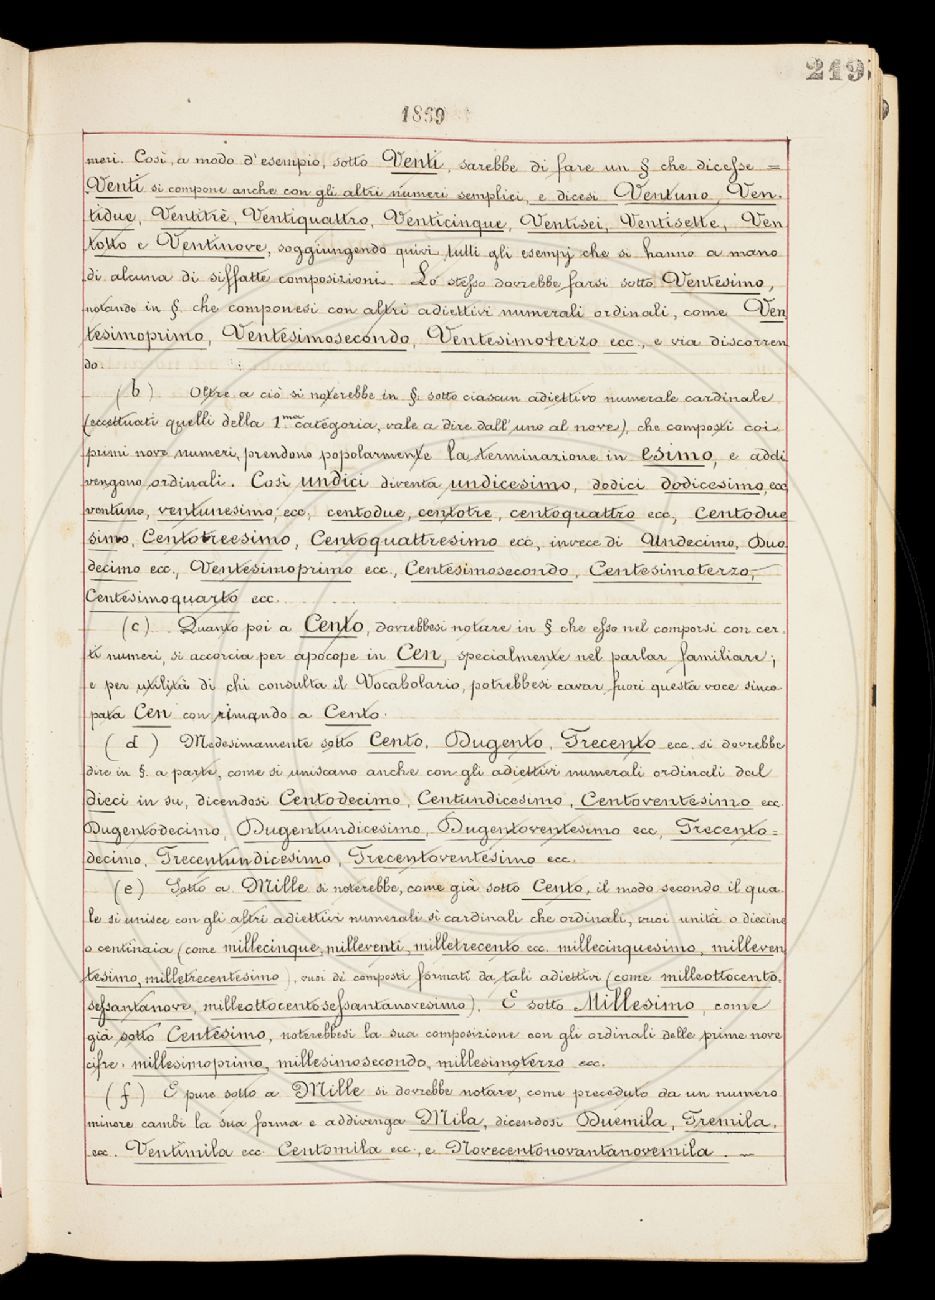 219
1869
meri. Così, a modo d'esempio, sotto Venti, sarebbe di fare un § che dicesse =
Venti si compone anche con gli altri numeri semplici, e dicesi Ventuno, Ven-
tidue, Ventitrè, Ventiquattro, Venticinque, Ventisei, Ventisette, Ven
totto e Ventinove, soggiungendo quivi tutti gli esempj che si hanno a mano
di alcuna di siffatte composizioni. Lo stesso dovrebbe farsi sotto Ventesimo,
notando in §. che componesi con altri adiettivi numerali ordinali, come Ven
tesimoprimo, Ventesimosecondo, Ventesimoterzo ecc., e via discorren
do
(b) Oltre a ciò si noterebbe in §. sotto ciascun adiettivo numerale cardinale
(eccettuati quelli della 1ma categoria, vale a dire dall'uno al nove), che composti coi
primi nove numeri, prendono popolarmente la terminazione in esimo, e addi
vengono ordinali. Così undici diventa undicesimo, dodici dodicesimo, ecc
ventuno, ventunesimo, ecc, centodue, centotre, centoquattro ecc, Centodue
simo, Centotreesimo, Centoquattresimo ecc, invece di Undecimo, Duo
decimo ecc., Ventesimoprimo ecc., Centesimosecondo, Centesimoterzo,
Centesimoquarto ecc.
(c) Quanto poi a Cento, dovrebbesi notare in § che esso nel comporsi con cer-
ti numeri, si accorcia per apocope in Cen, specialmente nel parlar familiare;
e per utilità di chi consulta il Vocabolario, potrebbesi cavar fuori questa voce sinco-
pata Cen con rimando a Cento.
(d) Medesimamente sotto Cento, Dugento, Trecento ecc. si dovrebbe
dire in §. a parte, come si uniscano anche con gli adiettivi numerali ordinali dal
dieci in su, dicendosi Centodecimo, Centundicesimo, Centoventesimo ecc.
Dugentodecimo, Dugentundicesimo, Dugentoventesimo ecc, Trecento=
decimo, Trecentundicesimo, Trecentoventesimo ecc.
(e) Sotto a Mille si noterebbe, come già sotto Cento, il modo secondo il qua-
le si unisce con gli altri adiettivi numerali sì cardinali che ordinali, vuoi unità o diecine
o centinaia (come millecinque, milleventi, milletrecento ecc. millecinquesimo, milleven
tesimo, milletrecentesimo), vuoi di composti formati da tali adiettivi (come milleottocento-
sessantanove, milleottocentosessantanovesimo). E sotto Millesimo, come
già sotto Centesimo, noterebbesi la sua composizione con gli ordinali delle prime nove
cifre. millesimoprimo, millesimosecondo, millesimoterzo ecc.
(f) E pure sotto a Mille si dovrebbe notare, come preceduto da un numero
minore cambi la sua forma e addivenga Mila, dicendosi Duemila, Tremila,
ecc. Ventimila ecc Centomila ecc., e Novecentonovantanovemila.